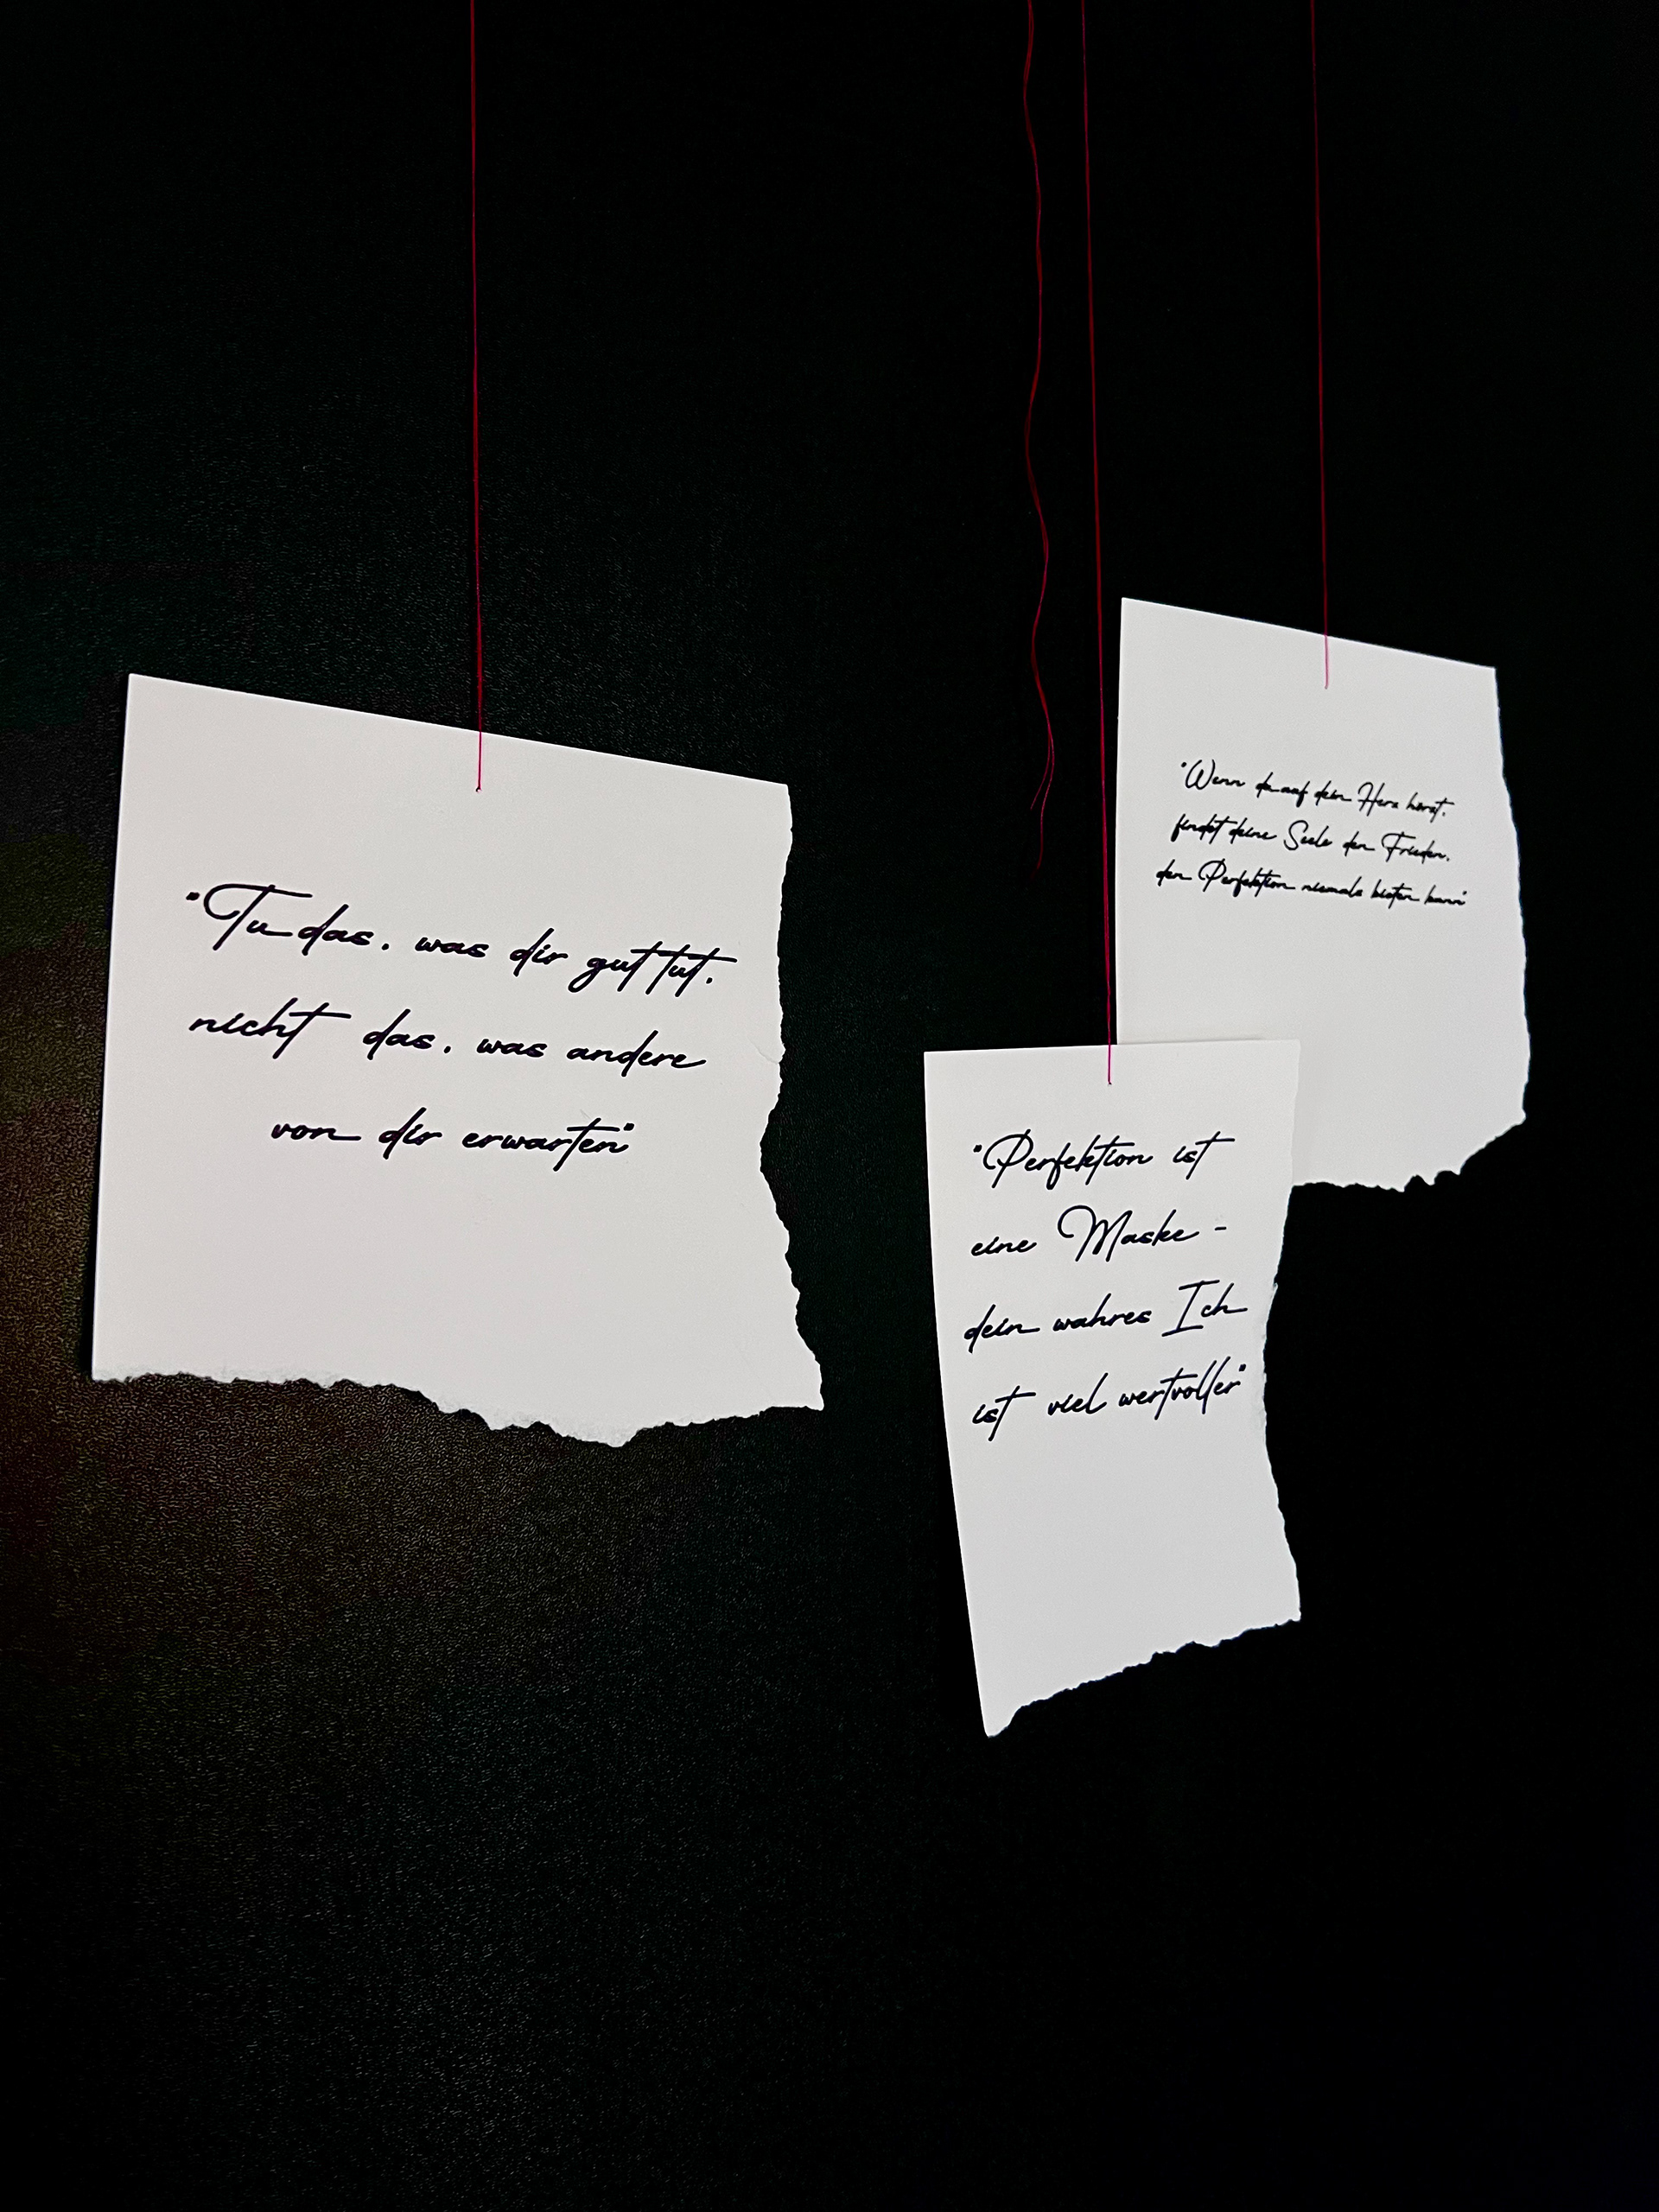 "Tu das, was dir gut tut,
nicht das, was andere
von dir erwarten"
"Wenn du auf dein Herz hörst,
findet deine Seele den Frieden,
den Perfektion niemals bieten kann"
"Perfektion ist
eine Maske -
dein wahres Ich
ist viel wertvoller"